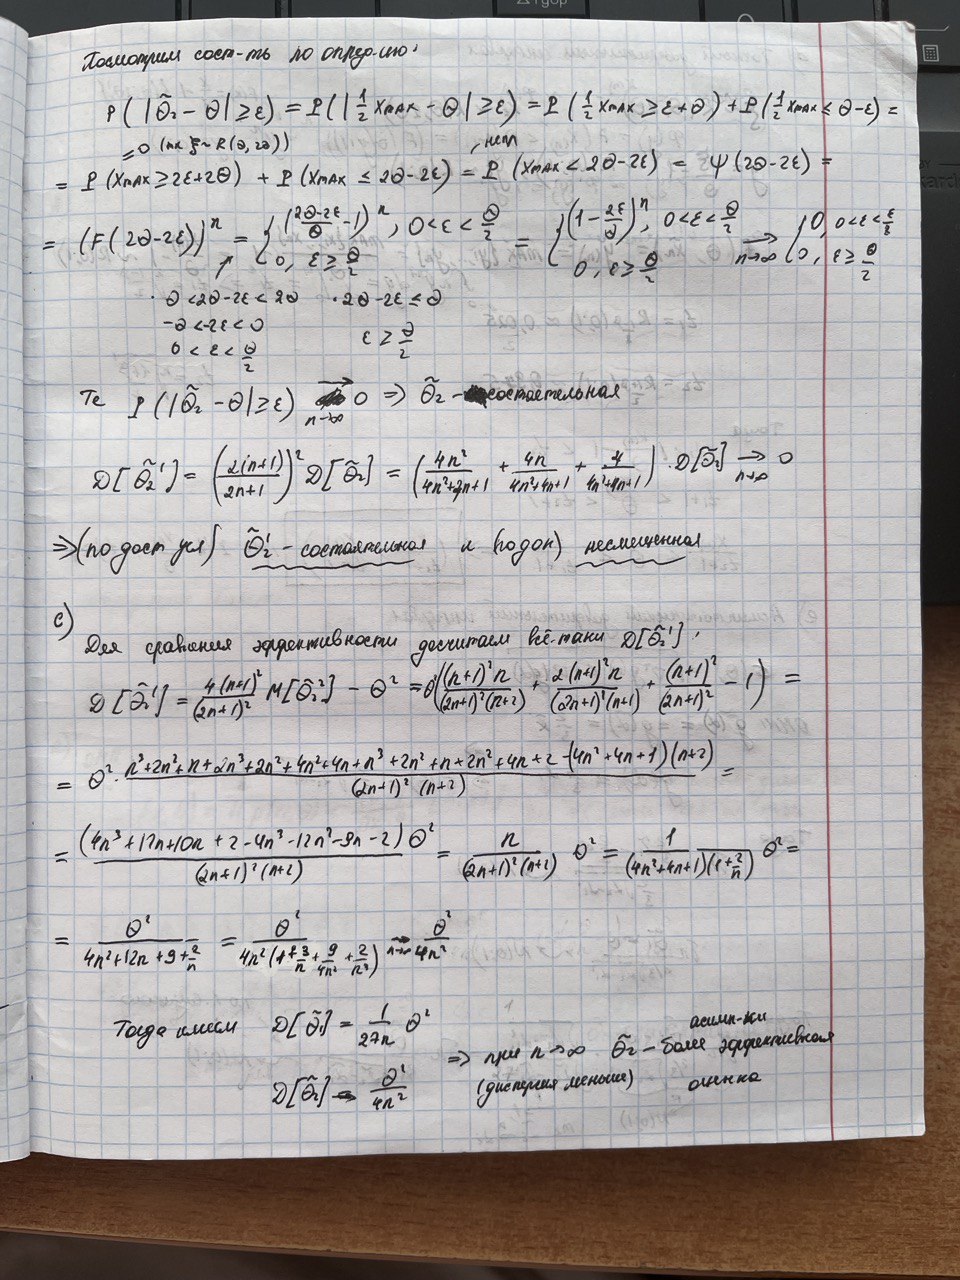 Посмотрим сост-ть по опред-ию:
P(|θ̃₂ - θ| ≥ ε) = P(|½ Xmax - θ| ≥ ε) = P(½ Xmax ≥ ε+θ) + P(½ Xmax ≤ θ-ε) =
=0 (тк ξ ~ R(θ, 2θ)) непр
= P(Xmax ≥ 2ε+2θ) + P(Xmax ≤ 2θ-2ε) = P(Xmax < 2θ-2ε) = Ψ(2θ-2ε) =
= (F(2θ-2ε))ⁿ = { ((2θ-2ε)/θ - 1)ⁿ, 0<ε<θ/2 ; 0, ε ≥ θ/2 = { (1 - 2ε/θ)ⁿ, 0<ε<θ/2 ; 0, ε ≥ θ/2 →(n→∞) { 0, 0<ε<ε/2 ; 0, ε ≥ θ/2
· θ < 2θ-2ε < 2θ · 2θ-2ε ≤ θ
-θ < -2ε < 0
0 < ε < θ/2 ε ≥ θ/2
Те P(|θ̃₂ - θ| ≥ ε) →(n→∞) 0 ⇒ θ̃₂ - состоятельная
D[θ̃₂'] = (2(n+1)/(2n+1))² D[θ̃₂] = (4n²/(4n²+4n+1) + 4n/(4n²+4n+1) + 4/(4n²+4n+1)) · D[θ̃₂] →(n→∞) 0
⇒ (по дост усл) θ̃₂' - состоятельная и (по доп) несмещенная
c)
Для сравнения эффективности досчитаем всё-таки D[θ̃₂'],
D[θ̃₂'] = 4(n+1)²/(2n+1)² M[θ̃₂²] - θ² = θ²((n+1)²n/((2n+1)²(n+2)) + 2(n+1)²n/((2n+1)²(n+1)) + (n+1)²/(2n+1)² - 1) =
= θ² · (n³+2n²+n+2n³+2n²+4n²+4n+n³+2n²+n+2n²+4n+2-(4n²+4n+1)(n+2))/((2n+1)²(n+2)) =
= (4n³+12n+10n+2-4n³-12n²-9n-2)θ²/((2n+1)²(n+2)) = n/((2n+1)²(n+2)) θ² = 1/((4n²+4n+1)(1+2/n)) θ² =
= θ²/(4n²+12n+9+2/n) = θ²/(4n²(1+3/n+9/4n²+2/n³)) →(n→∞) θ²/4n²
Тогда имеем D[θ̃₁] = 1/27n θ²
асимп-ки
⇒ при n→∞ θ̃₂ - более эффективная
D[θ̃₂] → θ²/4n² (дисперсия меньше) оценка